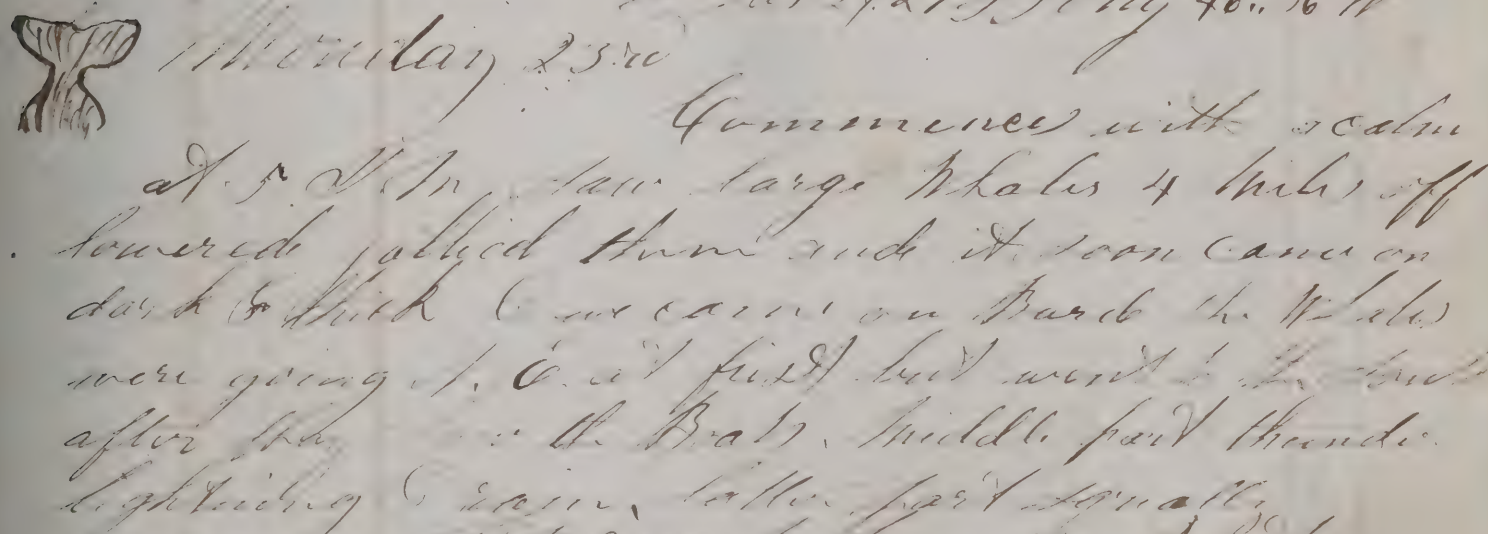 Monday 23rd
Commences with a calm
at 5 P.M. saw large Whales 4 miles off
lowered follied them and it soon came on
dark & thick & we came on Board the Whales
were going at first but went to the
after they the Boats. Middle part thunder
lightning & rain, latter part squally